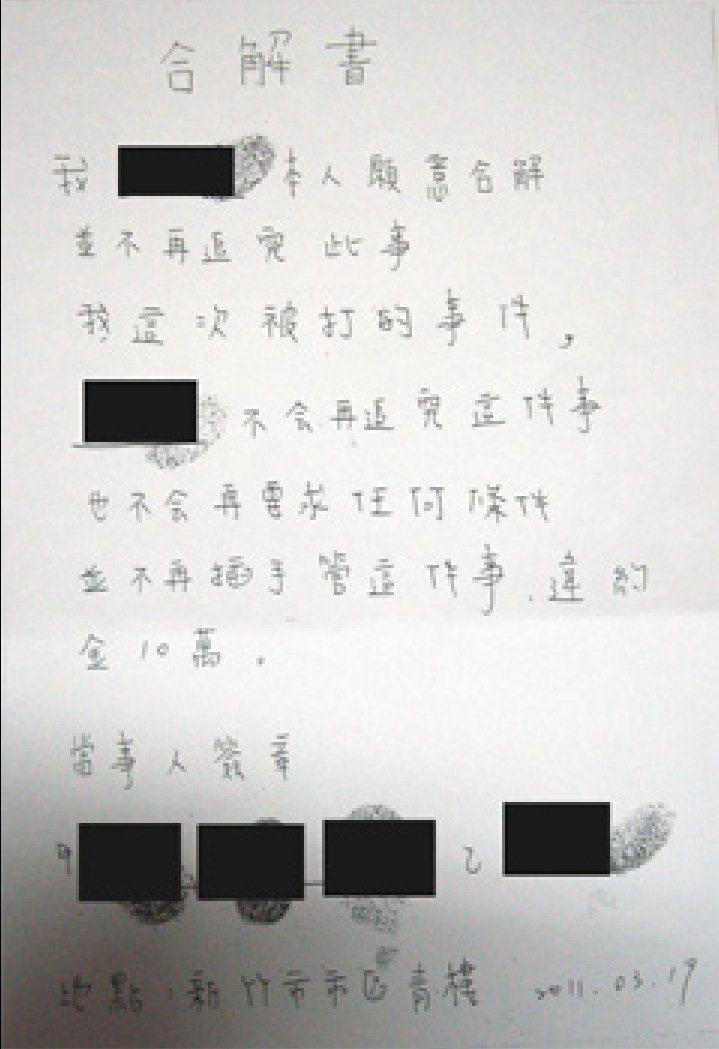 合解書
我 本人願意合解
並不再追究此事
我這次被打的事件，
不会再追究這件事
也不会再要求任何條件
並不再插手管這件事.違約
金10萬.
當事人簽章
甲 乙
地點:新竹市市区青樓 2011.03.19